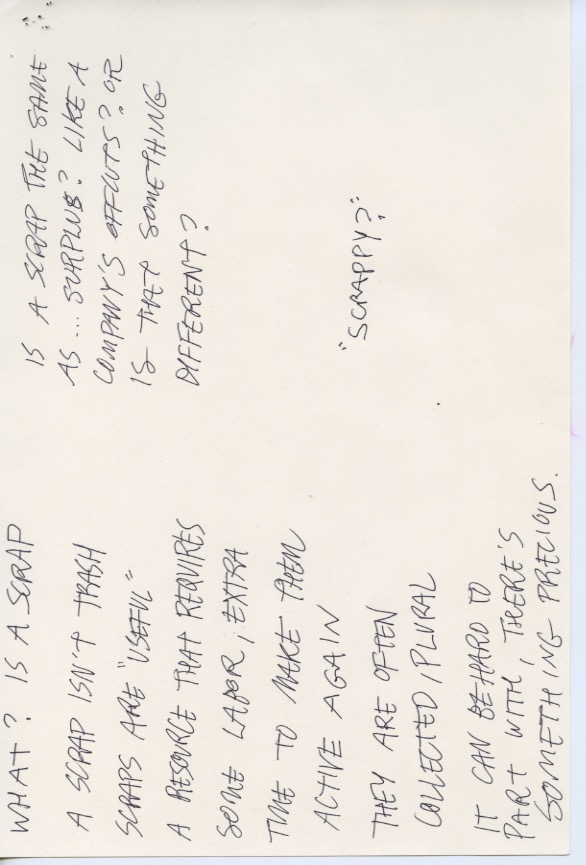 WHAT? IS A SCRAP
A SCRAP ISN'T TRASH
SCRAPS ARE "USEFUL"
A RESOURCE THAT REQUIRES
SOME LABOR, EXTRA
TIME TO MAKE THEM
ACTIVE AGAIN
THEY ARE OFTEN
COLLECTED, PLURAL
IT CAN BE HARD TO
PART WITH, THERE'S
SOMETHING PRECIOUS.
IS A SCRAP THE SAME
AS... SURPLUS? LIKE A
COMPANY'S OFFCUTS? OR
IS THAT SOMETHING
DIFFERENT?
"SCRAPPY?"